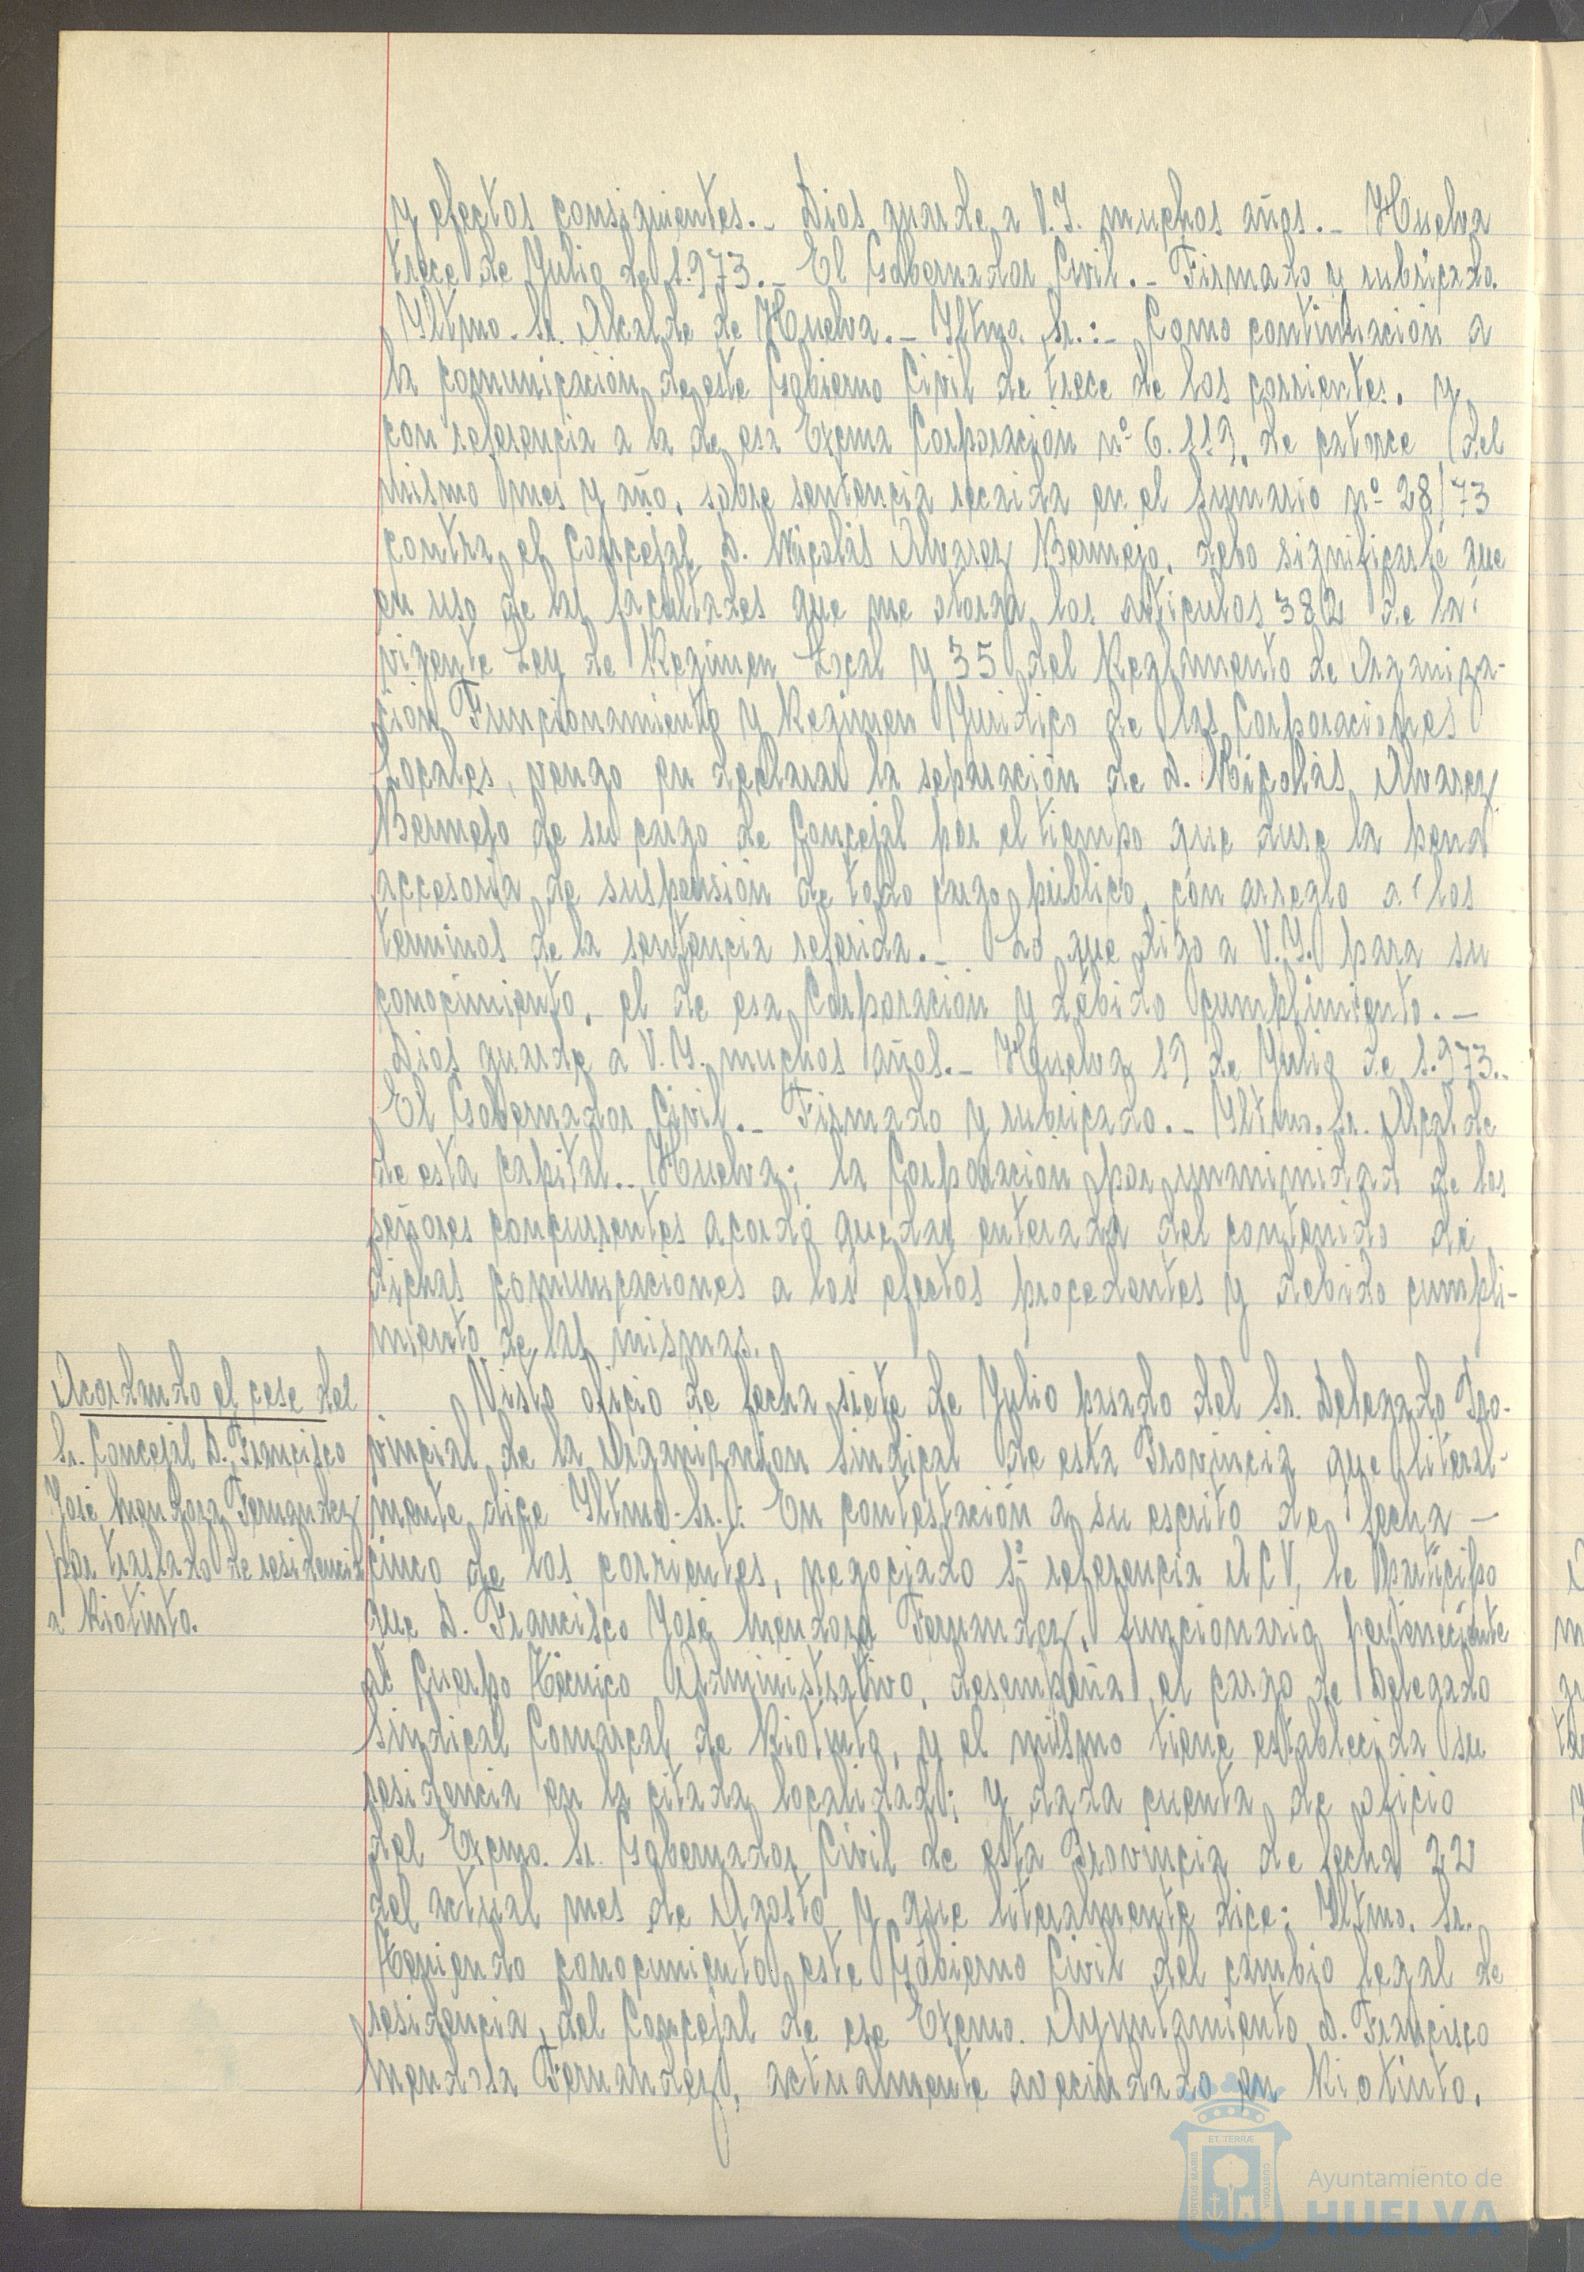 y efectos consiguientes.- Dios guarde a V.I. muchos años.- Huelva
trece de Julio de 1.973.- El Gobernador Civil.- Firmado y rubricado.
Yltmo. Sr. Alcalde de Huelva.- Yltmo. Sr.:- Como continuación a
la comunicación de este Gobierno Civil de trece de los corrientes, y
con referencia a la de esa Excma Corporación nº 6.119, de catorce del
mismo mes y año, sobre sentencia recaida en el sumario nº 28/73
contra el Concejal D. Nicolás Alvarez Bermejo, debo significarle que
en uso de las facultades que me otorga los artículos 382 de la
vigente Ley de Regimen Local y 35 del Reglamento de Organiza-
ción Funcionamiento y Regimen Juridico de las Corporaciones
Locales, vengo en declarar la separación de D. Nicolás Alvarez
Bermejo de su cargo de Concejal por el tiempo que dure la pena
accesoria de suspensión de todo cargo público, con arreglo a los
terminos de la sentencia referida.- Lo que digo a V.I. para su
conocimiento, el de esa Corporación y debido cumplimiento.-
Dios guarde a V.I. muchos años.- Huelva 19 de Julio de 1.973.-
El Gobernador Civil.- Firmado y rubricado.- Yltmo. Sr. Alcalde
de esta capital.- Huelva; la Corporación por unanimidad de los
señores concurrentes acordó quedar enterada del contenido de
dichas comunicaciones a los efectos procedentes y debido cumpli-
miento de las mismas.
Acordando el cese del
Sr. Concejal D. Francisco
José Mendoza Fernandez
por traslado de residencia
a Riotinto.
Visto oficio de fecha siete de Julio pasado del Sr. Delegado Pro-
vincial de la Organización Sindical de esta Provincia que literal-
mente dice Yltmo. Sr.: En contestación a su escrito de fecha -
cinco de los corrientes, negociado 1º referencia ACV, le participo
que D. Francisco José Mendoza Fernandez, funcionario perteneciente
al Cuerpo Técnico Administrativo, desempeña el cargo de Delegado
Sindical Comarcal de Riotinto, y el mismo tiene establecida su
residencia en la citada localidad; y dada cuenta de oficio
del Excmo. Sr. Gobernador Civil de esta Provincia de fecha 22
del actual mes de Agosto y que literalmente dice: Yltmo. Sr.
Teniendo conocimiento este Gobierno Civil del cambio legal de
residencia del Concejal de ese Excmo. Ayuntamiento D. Francisco
Mendoza Fernandez, actualmente avecindado en Riotinto,
ET TERRAE
PORTUS MARIS
CUSTODIA
Ayuntamiento de
HUELVA